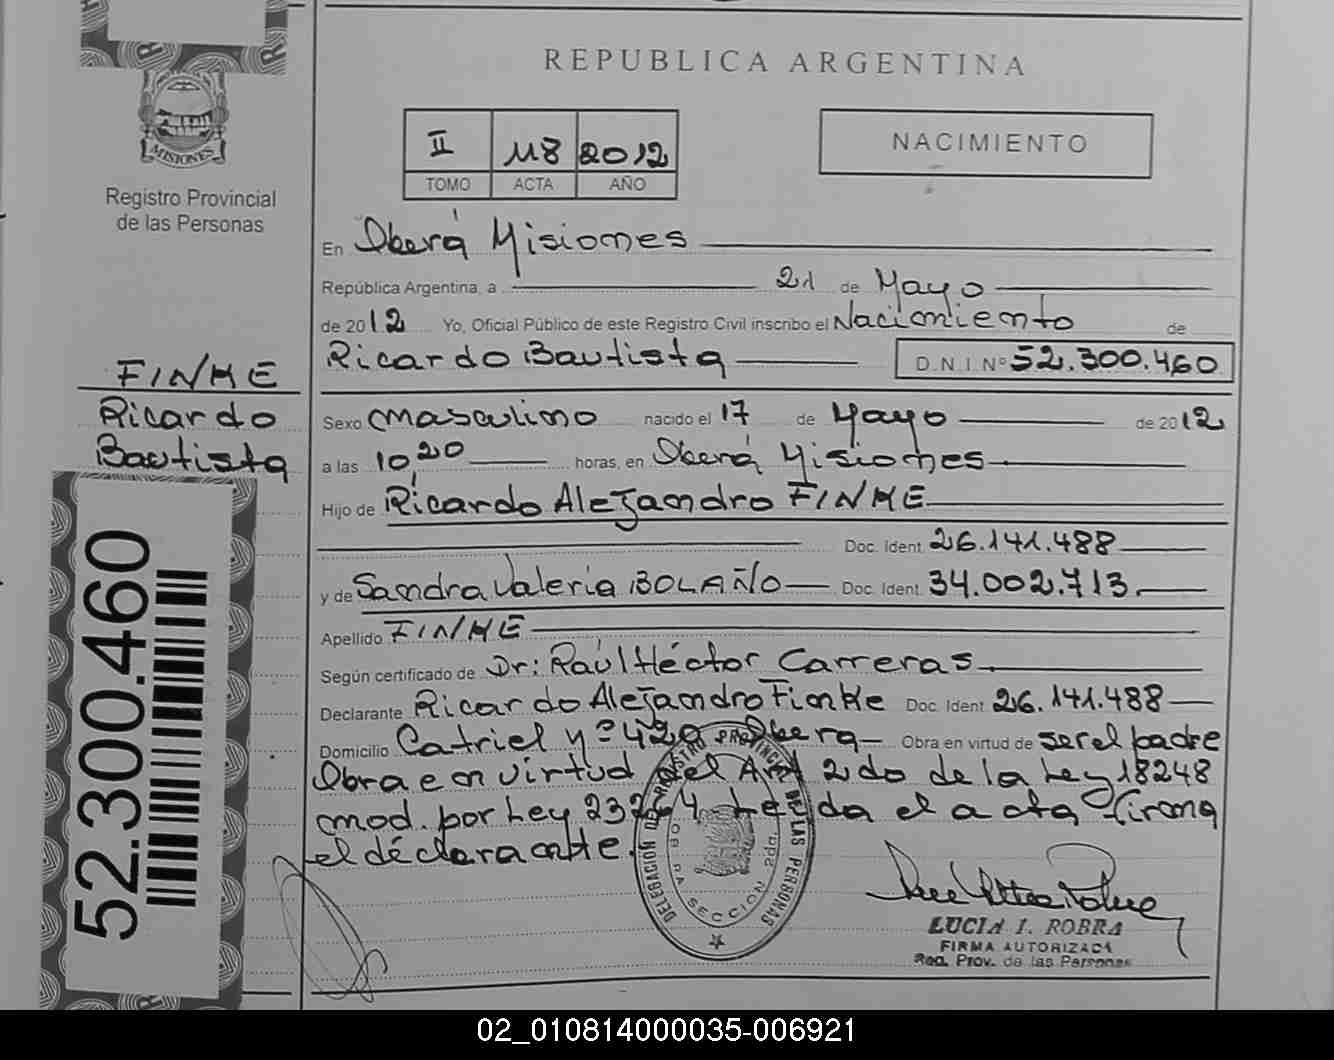 REPUBLICA ARGENTINA
MISIONES
Registro Provincial
de las Personas
II 118 2012
TOMO ACTA AÑO
NACIMIENTO
En Oberá Misiones
República Argentina, a 21 de Mayo
de 2012 Yo, Oficial Público de este Registro Civil inscribo el Nacimiento de
Ricardo Bautista D.N.I. Nº 52.300.460
FINKE
Ricardo
Bautista
Sexo masculino nacido el 17 de Mayo de 2012
a las 10,20 horas, en Oberá Misiones
Hijo de Ricardo Alejandro FINKE
Doc. Ident. 26.141.488
y de Sandra Valeria BOLAÑO Doc. Ident. 34.002.713.
Apellido FINKE
Según certificado de Dr: Raúl Héctor Carreras.
Declarante Ricardo Alejandro Finke Doc. Ident. 26.141.488
Domicilio Catriel Nº 420 Oberá Obra en virtud de ser el padre
Obra en virtud del Art 2do de la Ley 18248
mod. por Ley 23264 Leída el acta firma
el declarante.
DELEGACION DEL REGISTRO PROVINCIAL DE LAS PERSONAS
OBERA SECCION 2da.
LUCIA I. ROBRA
FIRMA AUTORIZADA
Reg. Prov. de las Personas
52.300.460
02_010814000035-006921